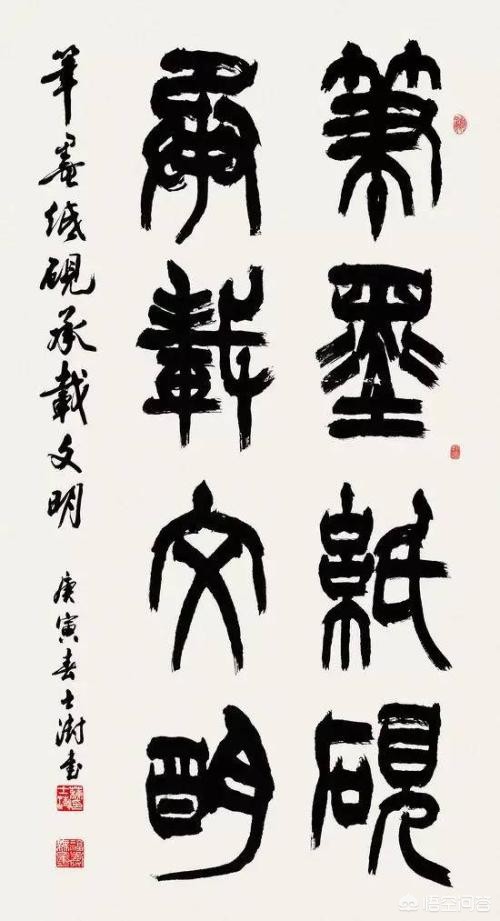 筆墨紙硯
承載文明
筆墨紙硯承載文明 庚寅春士澍書
悟空问答